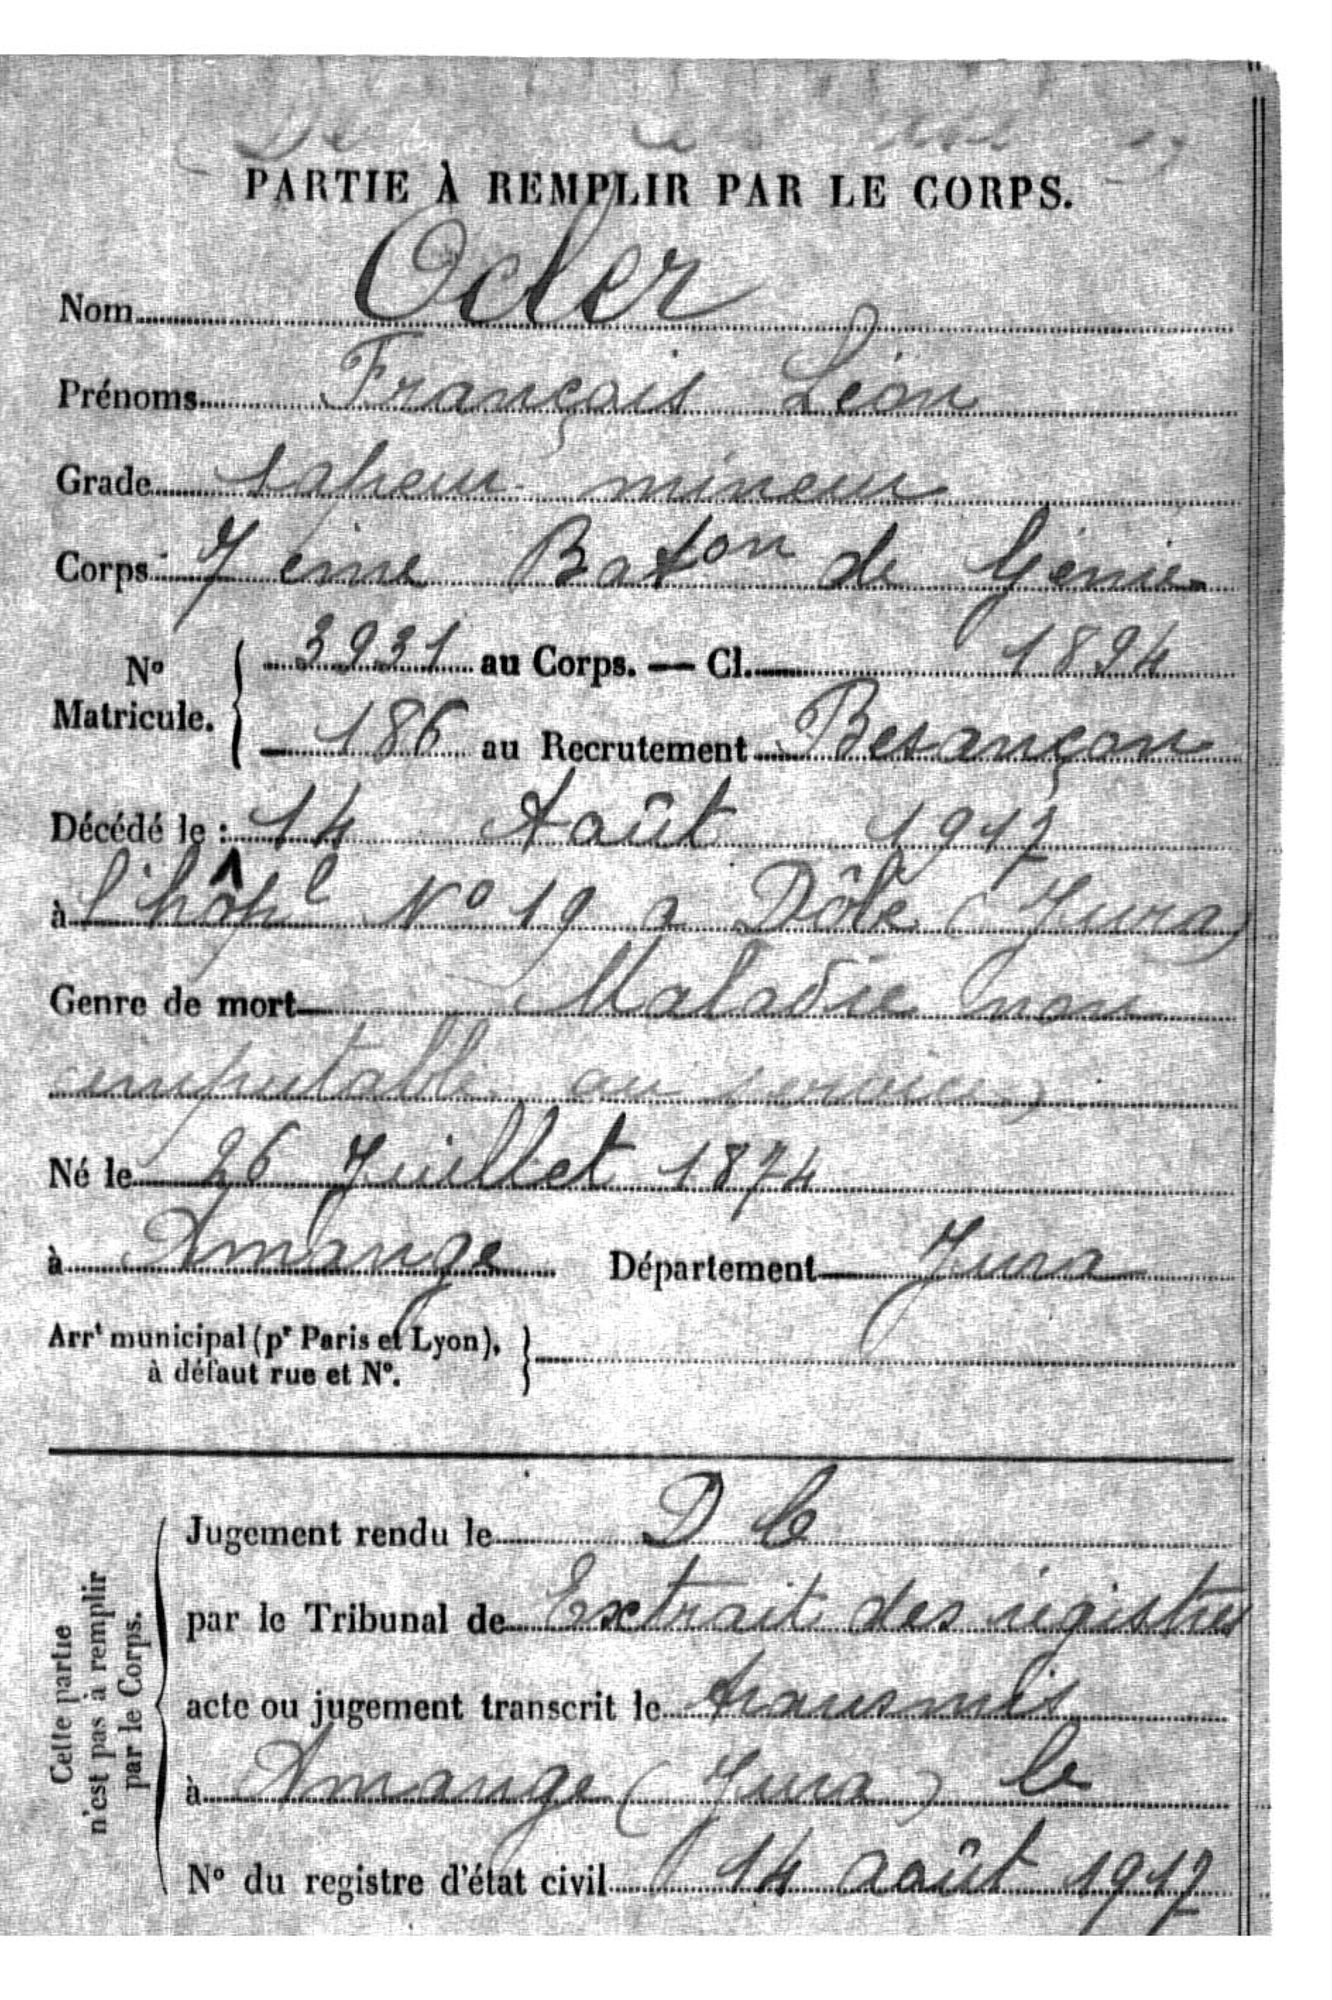 PARTIE À REMPLIR PAR LE CORPS.
Nom Ocler
Prénoms François Léon
Grade sapeur mineur
Corps 7 ème Baton de Génie
No Matricule. 3931 au Corps. — Cl. 1894
186 au Recrutement Besançon
Décédé le : 14 Août 1917
à l'hôpl No 19 a Dôle (Jura)
Genre de mort Maladie non
imputable au service
Né le 26 Juillet 1874
à Amange Département Jura
Arrt municipal (pr Paris et Lyon),
à défaut rue et No.
Cette partie
n'est pas à remplir
par le Corps.
Jugement rendu le D C
par le Tribunal de Extrait des régistres
acte ou jugement transcrit le transmis
à Amange (Jura) le
No du registre d'état civil 14 août 1917